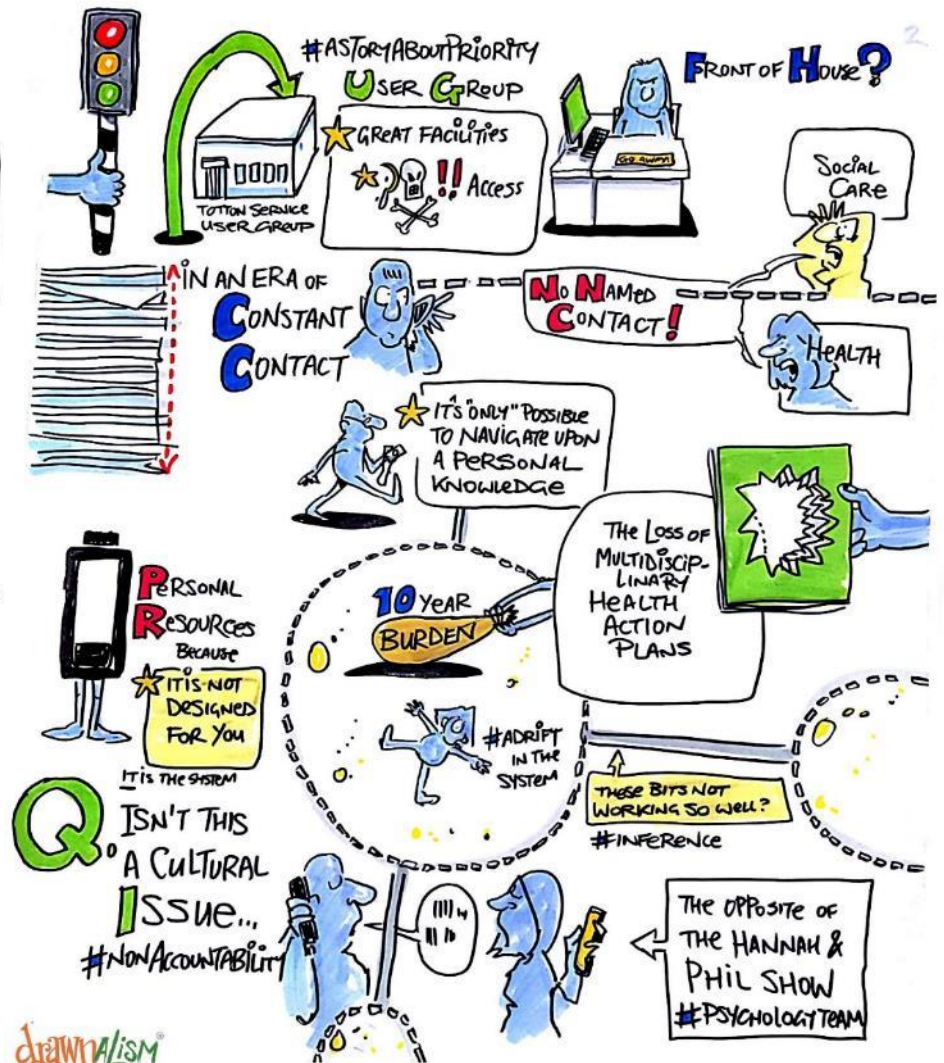 2
#ASTORYABOUTPRIORITY
USER GROUP
GREAT FACILITIES
!! Access
TOTTON SERVICE
USER GROUP
GO AWAY!
FRONT OF HOUSE?
SOCIAL
CARE
IN AN ERA OF
CONSTANT
CONTACT
NO NAMED
CONTACT!
HEALTH
IT'S "ONLY" POSSIBLE
TO NAVIGATE UPON
A PERSONAL
KNOWLEDGE
THE LOSS OF
MULTIDISCIP-
LINARY
HEALTH
ACTION
PLANS
10 YEAR
BURDEN
PERSONAL
RESOURCES
BECAUSE
IT IS NOT
DESIGNED
FOR YOU
IT IS THE SYSTEM
#ADRIFT
IN THE
SYSTEM
THESE BITS NOT
WORKING SO WELL?
#INFERENCE
Q. ISN'T THIS
A CULTURAL
ISSUE...
#NONACCOUNTABILITY
THE OPPOSITE OF
THE HANNAH &
PHIL SHOW
#PSYCHOLOGYTEAM
drawnALISM